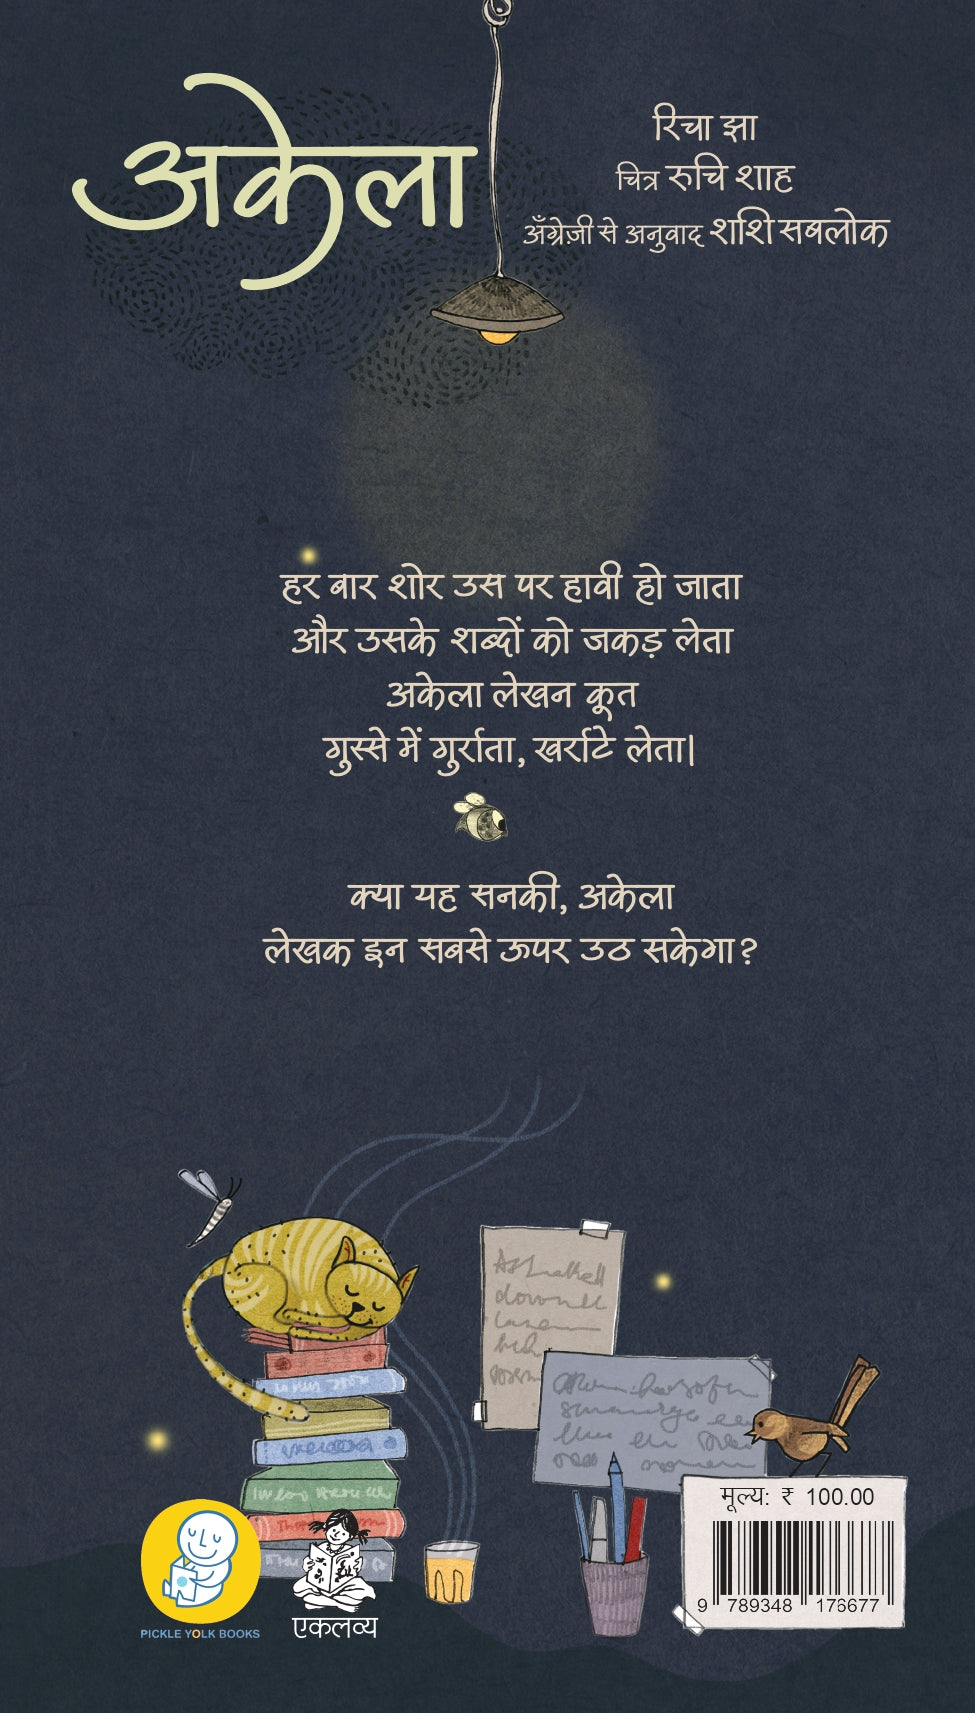 अकेला
रिचा झा
चित्र रुचि शाह
अँग्रेज़ी से अनुवाद शशि सबलोक
हर बार शोर उस पर हावी हो जाता
और उसके शब्दों को जकड़ लेता
अकेला लेखन कूत
गुस्से में गुर्राता, खर्राटे लेता।
क्या यह सनकी, अकेला
लेखक इन सबसे ऊपर उठ सकेगा?
मूल्य: ₹ 100.00
9 789348 176677
PICKLE YOLK BOOKS
एकलव्य